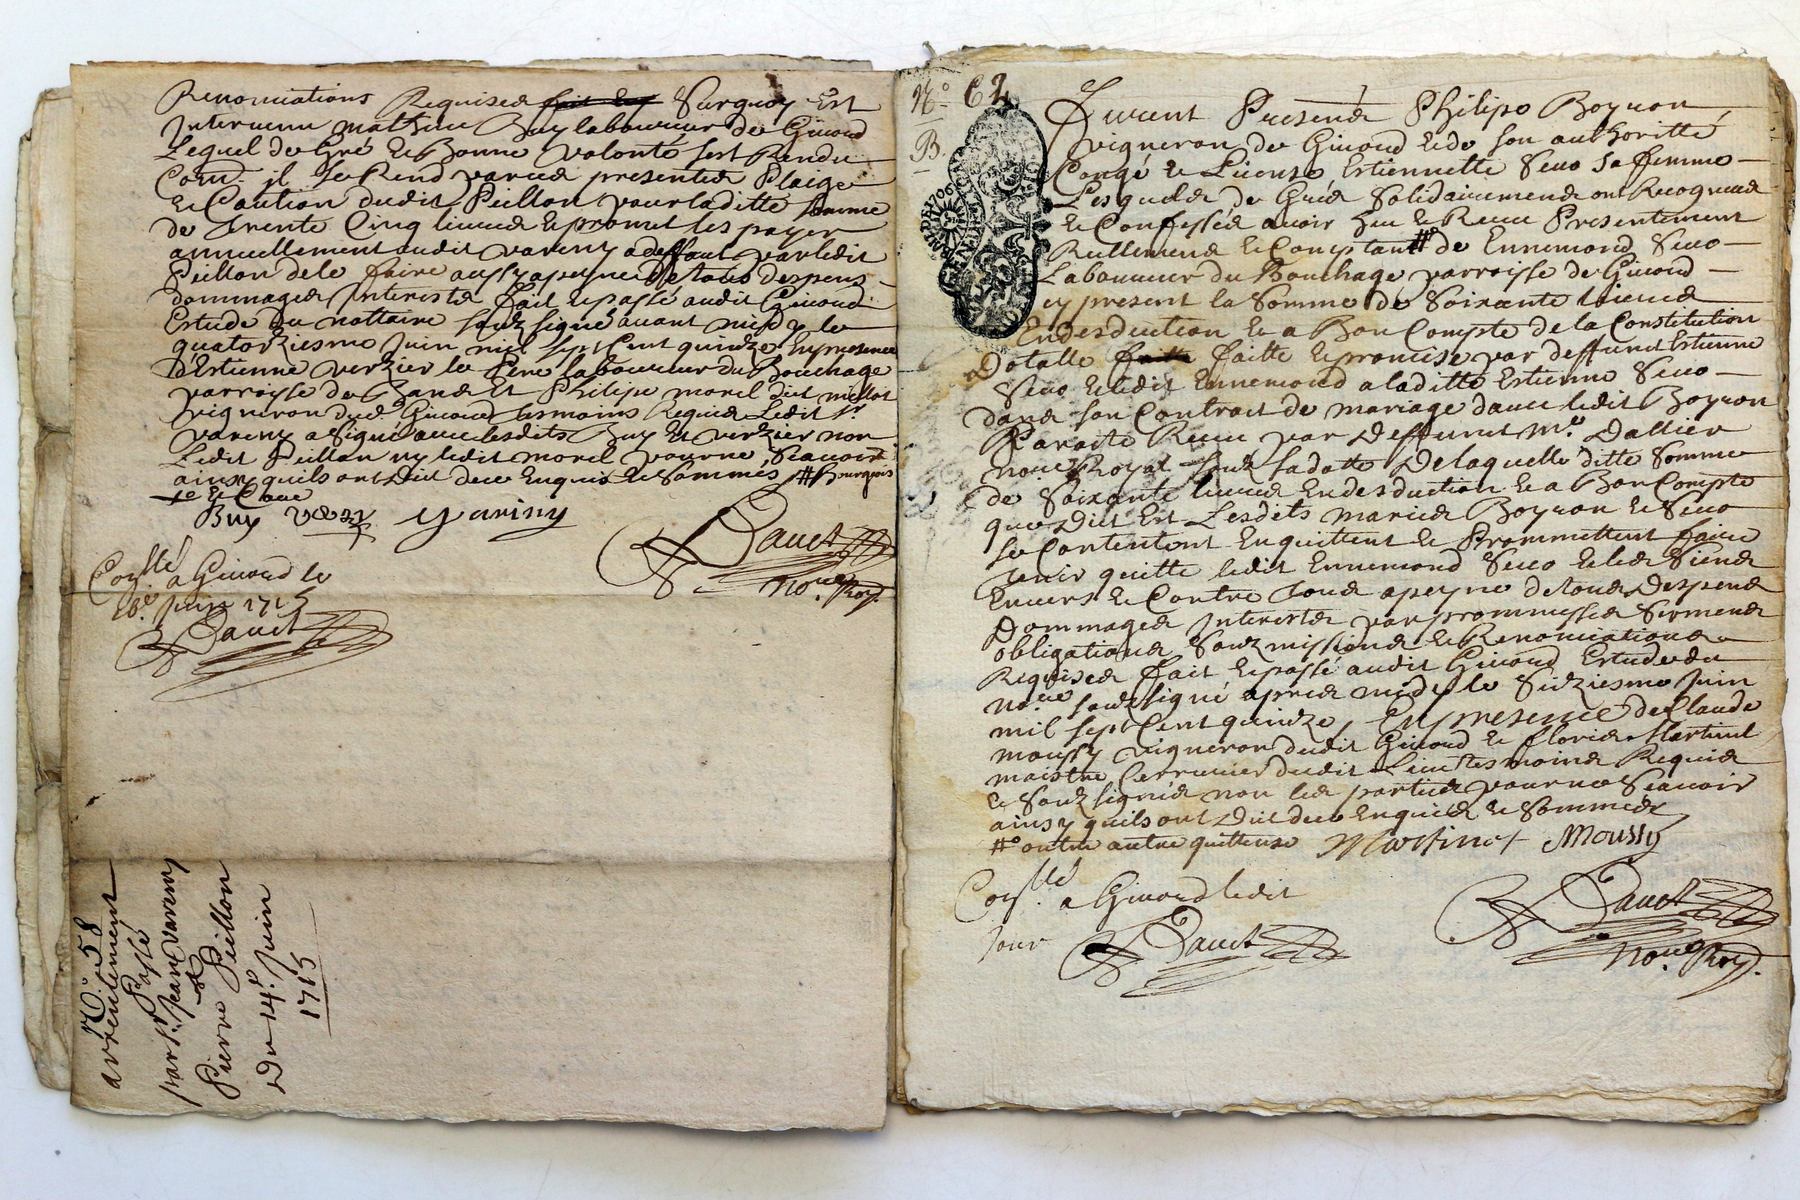 Renonciations Requises fait Surquoy Est
Intervenu mathieu Buy laboureur de Givord
Lequel de Gré et Bonne volonté sest Rendu
Com.e jl se Rend par ces presentes Plaige
et Caution dudit Peillon pour laditte somme
de Trente Cinq livres et promet les payer
annuellement audit vareny adeffaut par ledit
Peillon dele faire aussy apeyne de tous despens
dommages Interests fait et passé audit Givord
Estude du nottaire soubzsigné avant midy le
quatorziesme Juin mil sept Cent quinze En presence
d'Estienne verzier le Pere laboureur du Bouchage
parroisse de Et Philipe morel dit millot
vigneron dud. Givord tesmoins Requis Ledit Sr
vareny a signé avec lesdits Buy et verzier non
Ledit Peillon ny ledit morel pour ne Scavoir
ainsy quils ont Dit de ce Enquis et Sommés # Bourgeois
Buy verzi yariny
Dauct
No.re Roy.
Con.llé a Givord le
Juin 1715
Dauct
N.o 58
Passé
par Sr. Jean vareny
a
Pierre Peillon
Du 14.e Juin
1715
N.o 62
B.
GENERALITE DE LYON
Furent Presents Philipe Boyron
vigneron de Givord et de son authoritté
Congé et License Estiennette Seve sa femme
Lesquels de Gré Solidairement ont Recogneus
et Confessés avoir Eu et Receu Presentement
Reellement et Comptant # de Ennemond Seve
Laboureur du Bouchage parroisse de Givord
cy present la Somme de Soixante livres
En desduction et a Bon Compte de la Constitution
Dotalle faitte faitte et promise par deffunct Estienne
Seve et ledit Ennemond a laditte Estienne Seve
dans son Contract de mariage avec ledit Boyron
Receu par Deffunct M.e Dallier
no.re Royal soubz sa datte De laquelle ditte Somme
de Soixante livres En desduction et a Bon Compte
que Dit Est Lesdits mariés Boyron et Seve
se Contentent En quittent et Prommettent faire
tenir quitte ledit Ennemond Seve et les Siens
Envers et Contre tous apeyne de tous Despens
Dommages Interests par prommesses Serments
obligations Soubzmissions et Renonciations
Requises fait et passé audit Givord Estude du
no.re soubzsigné apres midy le Seiziesme Juin
mil sept Cent quinze, En presence de Claude
moussy vigneron dudit Givord et floris Martinet
maistre Serrurier dudit Lieu tesmoins Requis
et Soubzsignés non les parties pour ne Scavoir
ainsy quils ont Dit de ce Enquis et Sommés
# outre autre quittense Martinet Moussy
Con.llé a Givord ledit
Jour
Dauct
Dauct
No.re Roy.